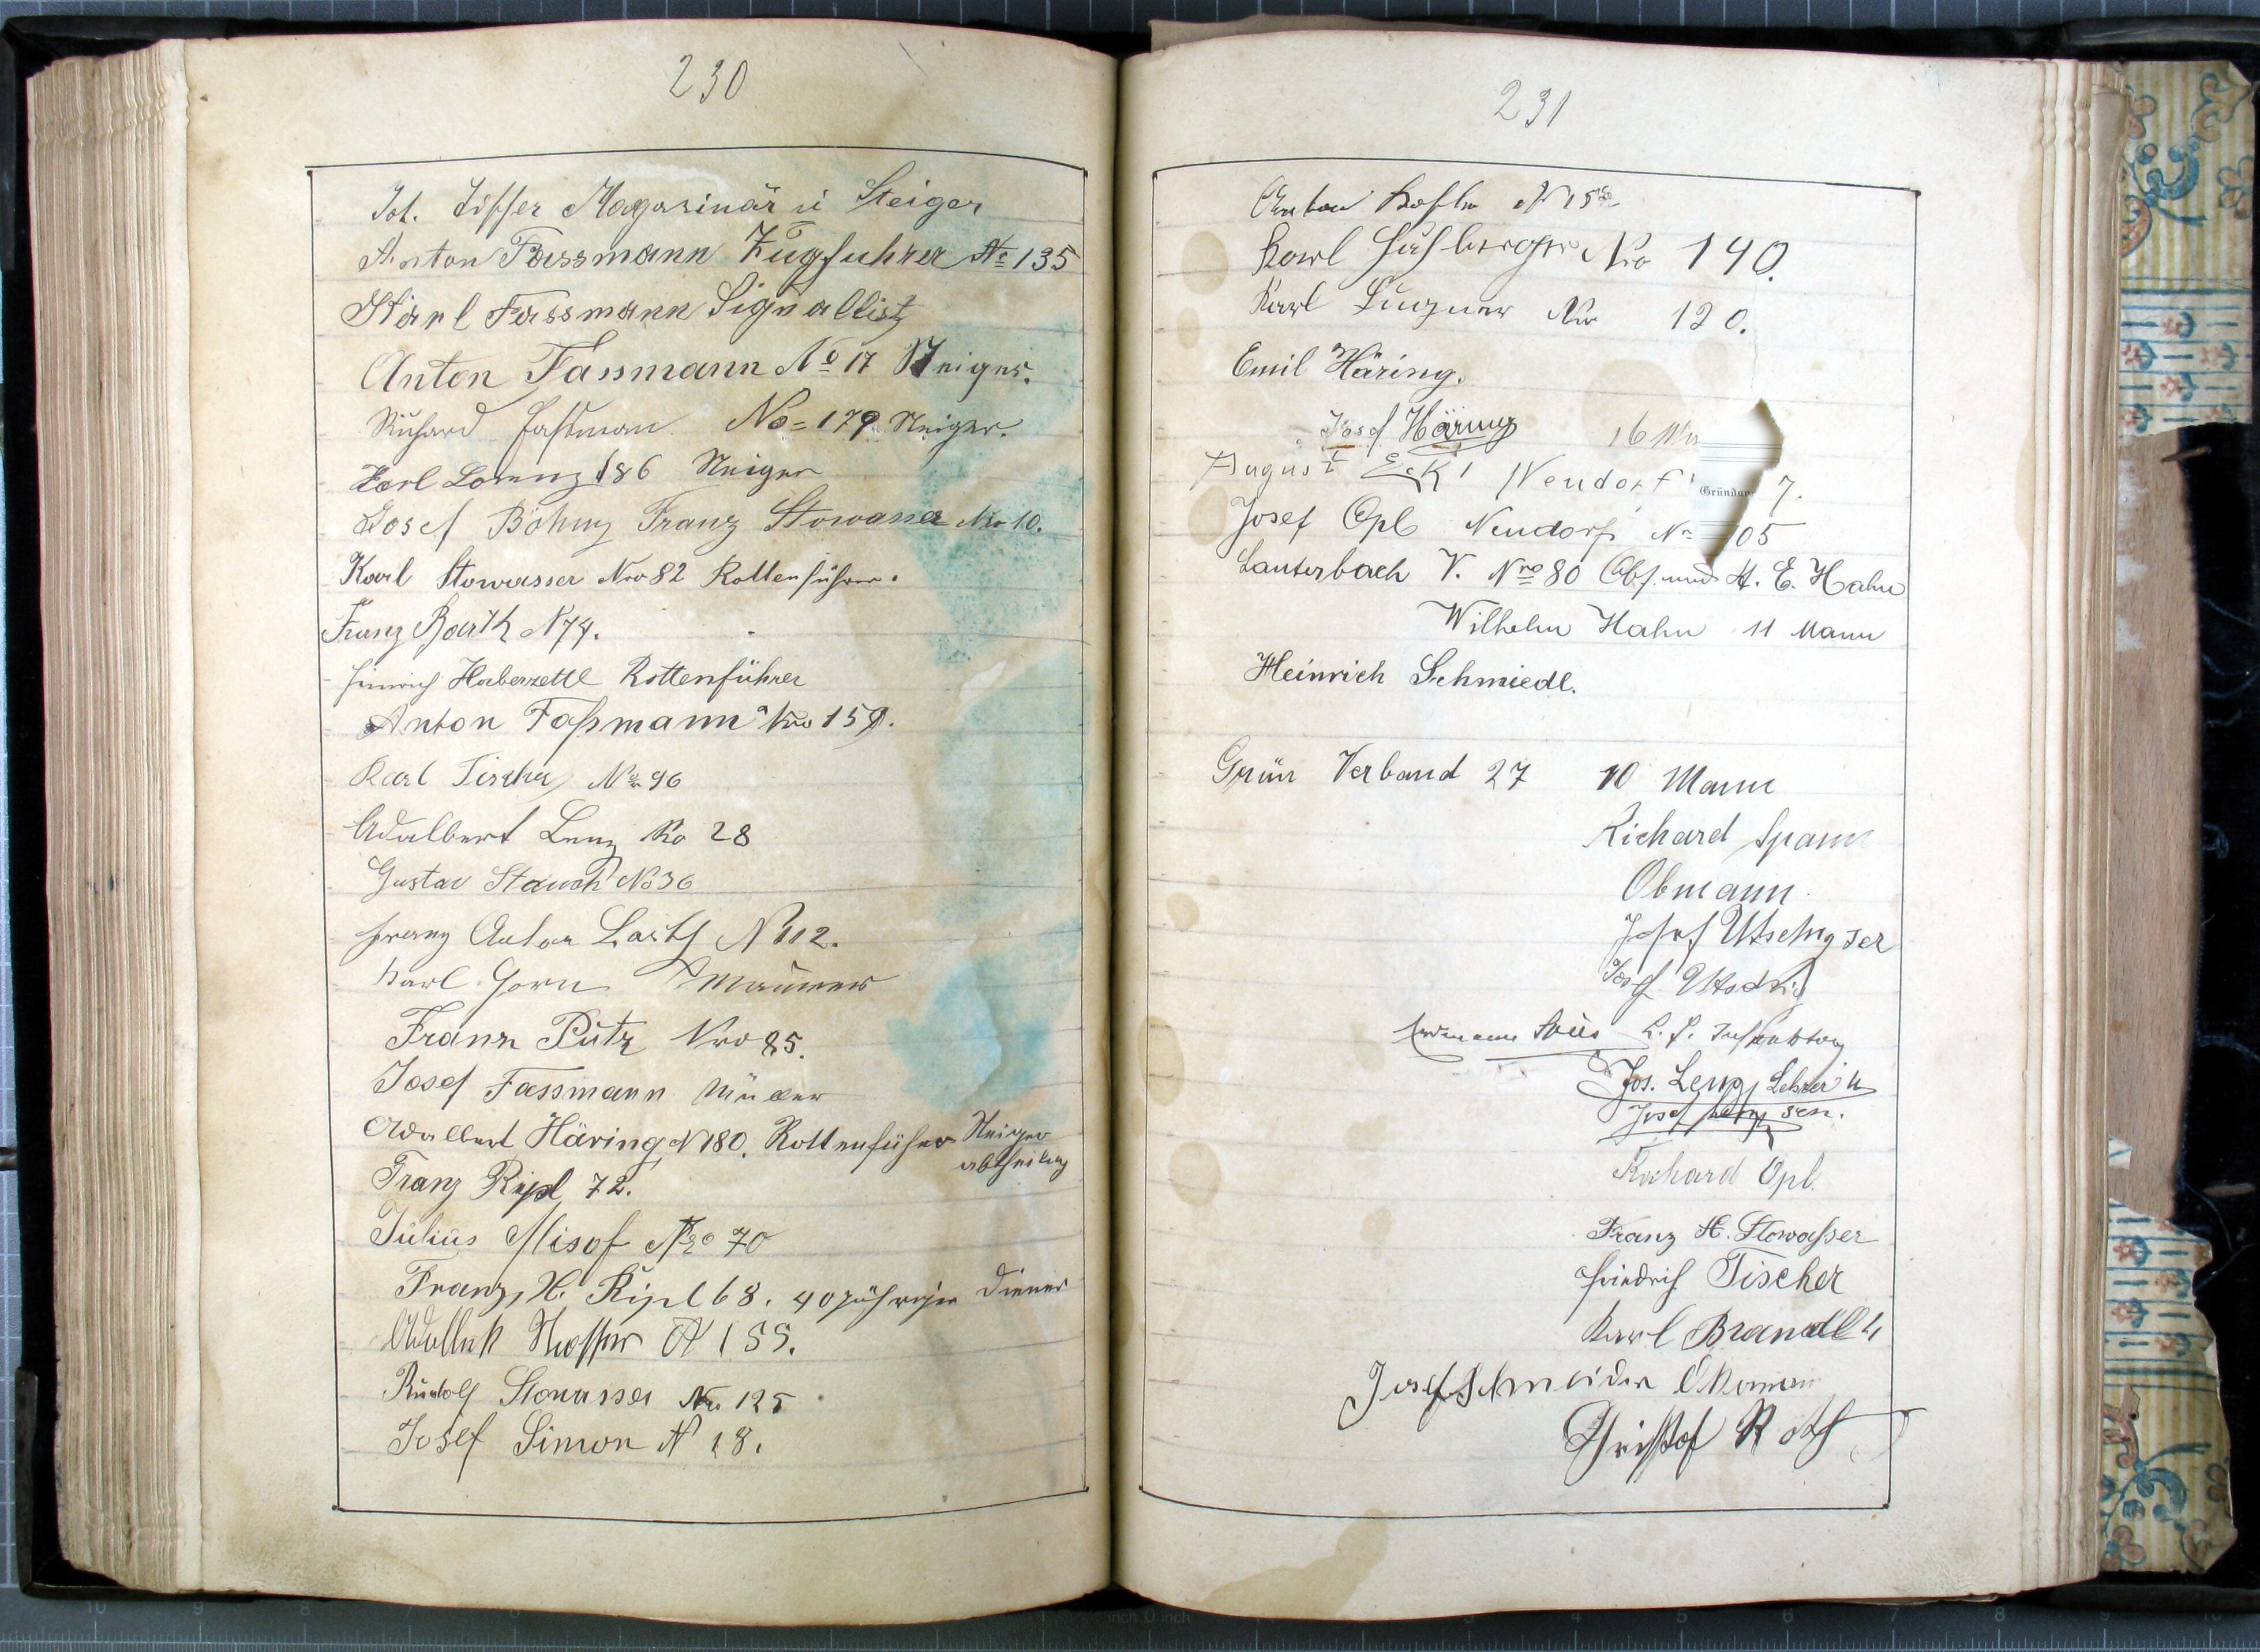 230
Jos. Tischer Magasinär ü Steiger
Anton Fassmann Zugfuhrer No 135
Karl Fassmann Signallist
Anton Fassmann No 17 Steiger.
Richard Faßman No = 179 Steiger.
Karl Lorenz 186 Steiger
Josef Böhm Franz Stowasser Nro 10.
Karl Stowasser Nro 82 Rottenführer.
Franz Barth N 74.
Heinrich Haberzettl Rottenführer
Anton Faßmann Nro 159.
Karl Tischer No 96
Adalbert Lenz No 28
Gustav Stauch No 36
Franz Anton N 112.
Karl Gorn Maurer
Franz Pütz Nro 85.
Josef Fassmann Müller
Adalbert Häring N 180. Rottenführer Steiger
abtheilung
Franz Ripl 72.
Julius Misof Nro 70
Franz, H. Ripl 68. 40 jähriger Diener
N 155.
Rudolf Stowasser Nro 125
Josef Simon N 18.
231
Anton N 15
Karl Nro 140.
Karl Nro 120.
Emil Häring.
Josef Häring 16 
August Eckl Neudorf 7.
Gründun
Josef Opl Neudorf No 105
Lauterbach V. Nro 80 Obf. und H. E. Hahn
Wilhelm Hahn 11 Mann
Heinrich Schmiedl.
Grün Verband 27 10 Mann
Richard Spann
Obmann
Josef
Josef
Süss
Jos. Lenz, Lehrer
Josef Lenz sen.
Richard Opl.
Franz H. Stowaßer
Friedrich Tischer
Karl Brandl
Josef Schneider
Christof Roth